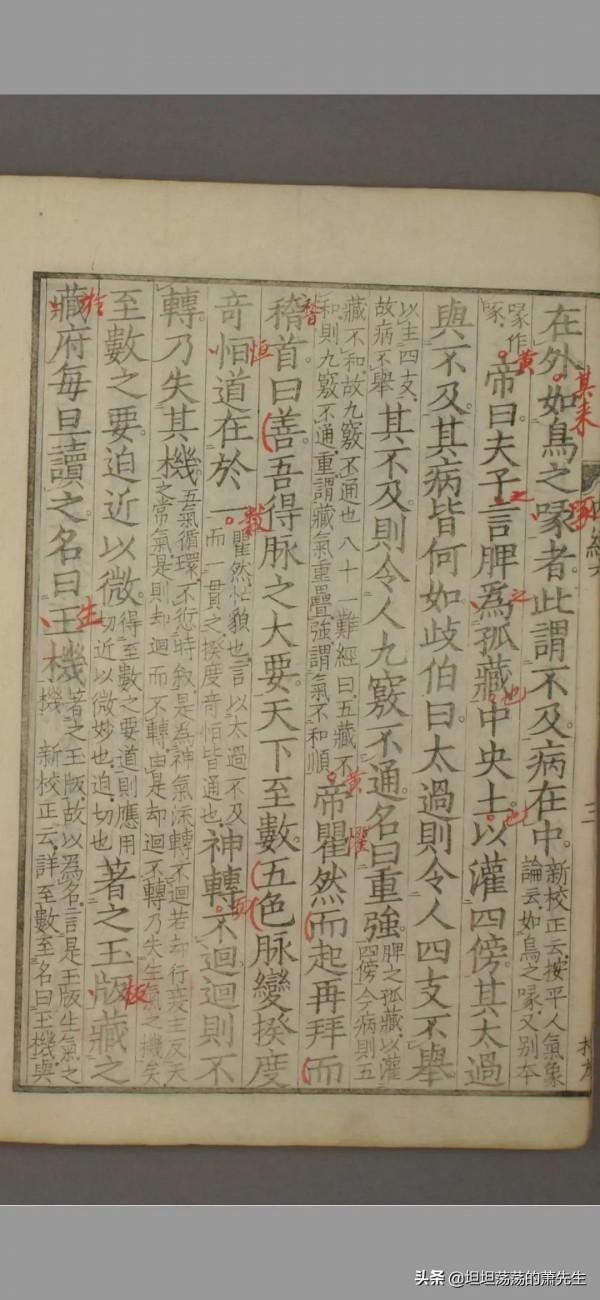 在外如鳥之喙者此謂不及病在中新校正云按平人氣象論云如鳥之喙又別本
喙作喙帝曰夫子言脾為孤藏中央土以灌四傍其太過
與不及其病皆何如歧伯曰太過則令人四支不舉
以主四支故病不舉其不及則令人九竅不通名曰重強脾之孤藏以灌四傍今病則五
藏不和故九竅不通也八十一難經曰五藏不和則九竅不通重謂藏氣重疊強謂氣不和順帝瞿然而起再拜而
稽首曰善吾得脉之大要天下至數五色脉變揆度
奇恒道在於一瞿然忙貌也言以太過不及而一貫之揆度奇恒皆通也神轉不迴迴則不
轉乃失其機五氣循環不愆時叙是為神氣流轉不迴若却行衰王反天之常氣是則却迴而不轉由是却迴不轉乃失生氣之機矣
至數之要迫近以微得至數之要道則應用切近以微妙也迫切也著之王版藏之
藏府每旦讀之名曰王機著之王版故以為名言是王版生氣之機 新校正云詳至數至名曰王機與
其来
喙
黄
之
之
也
也
黄
懼
数
恒
則
版
生
於
头条 @坦坦荡荡的萧先生